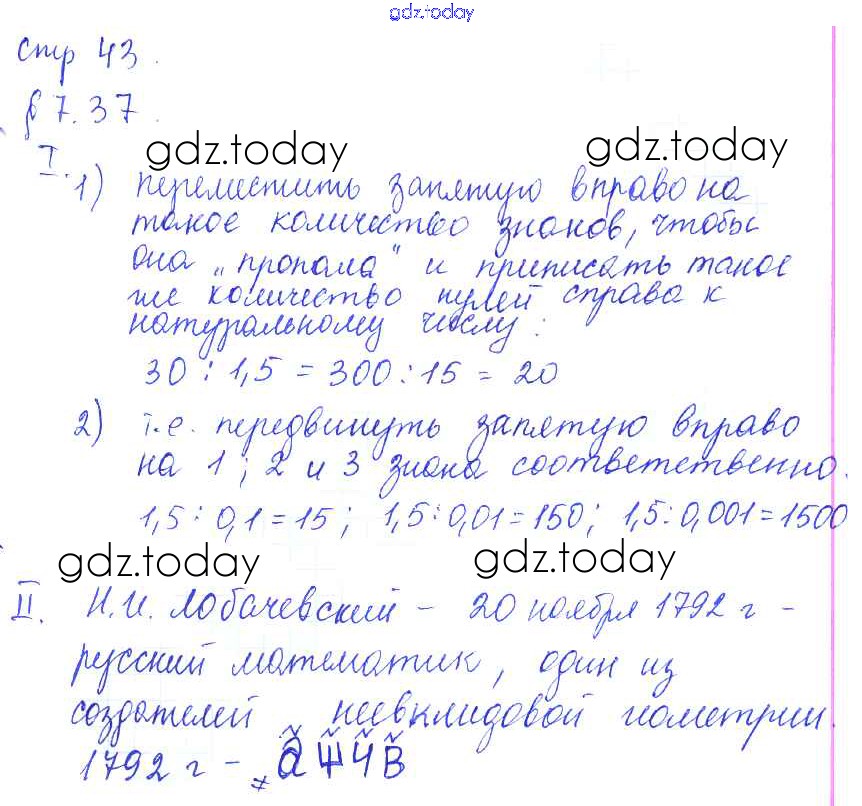 gdz.today
стр 43.
§ 7.37.
gdz.today gdz.today
I. 1) переместить запятую вправо на
такое количество знаков, чтобы
она „пропала" и приписать такое
же количество нулей справа к
натуральному числу:
30 : 1,5 = 300 : 15 = 20
2) т.е. передвинуть запятую вправо
на 1; 2 и 3 знака соответственно.
1,5 : 0,1 = 15; 1,5 : 0,01 = 150; 1,5 : 0,001 = 1500
gdz.today gdz.today
II. Н.И. Лобачевский - 20 ноября 1792 г -
русский математик, один из
создателей неевклидовой геометрии.
1792 г -